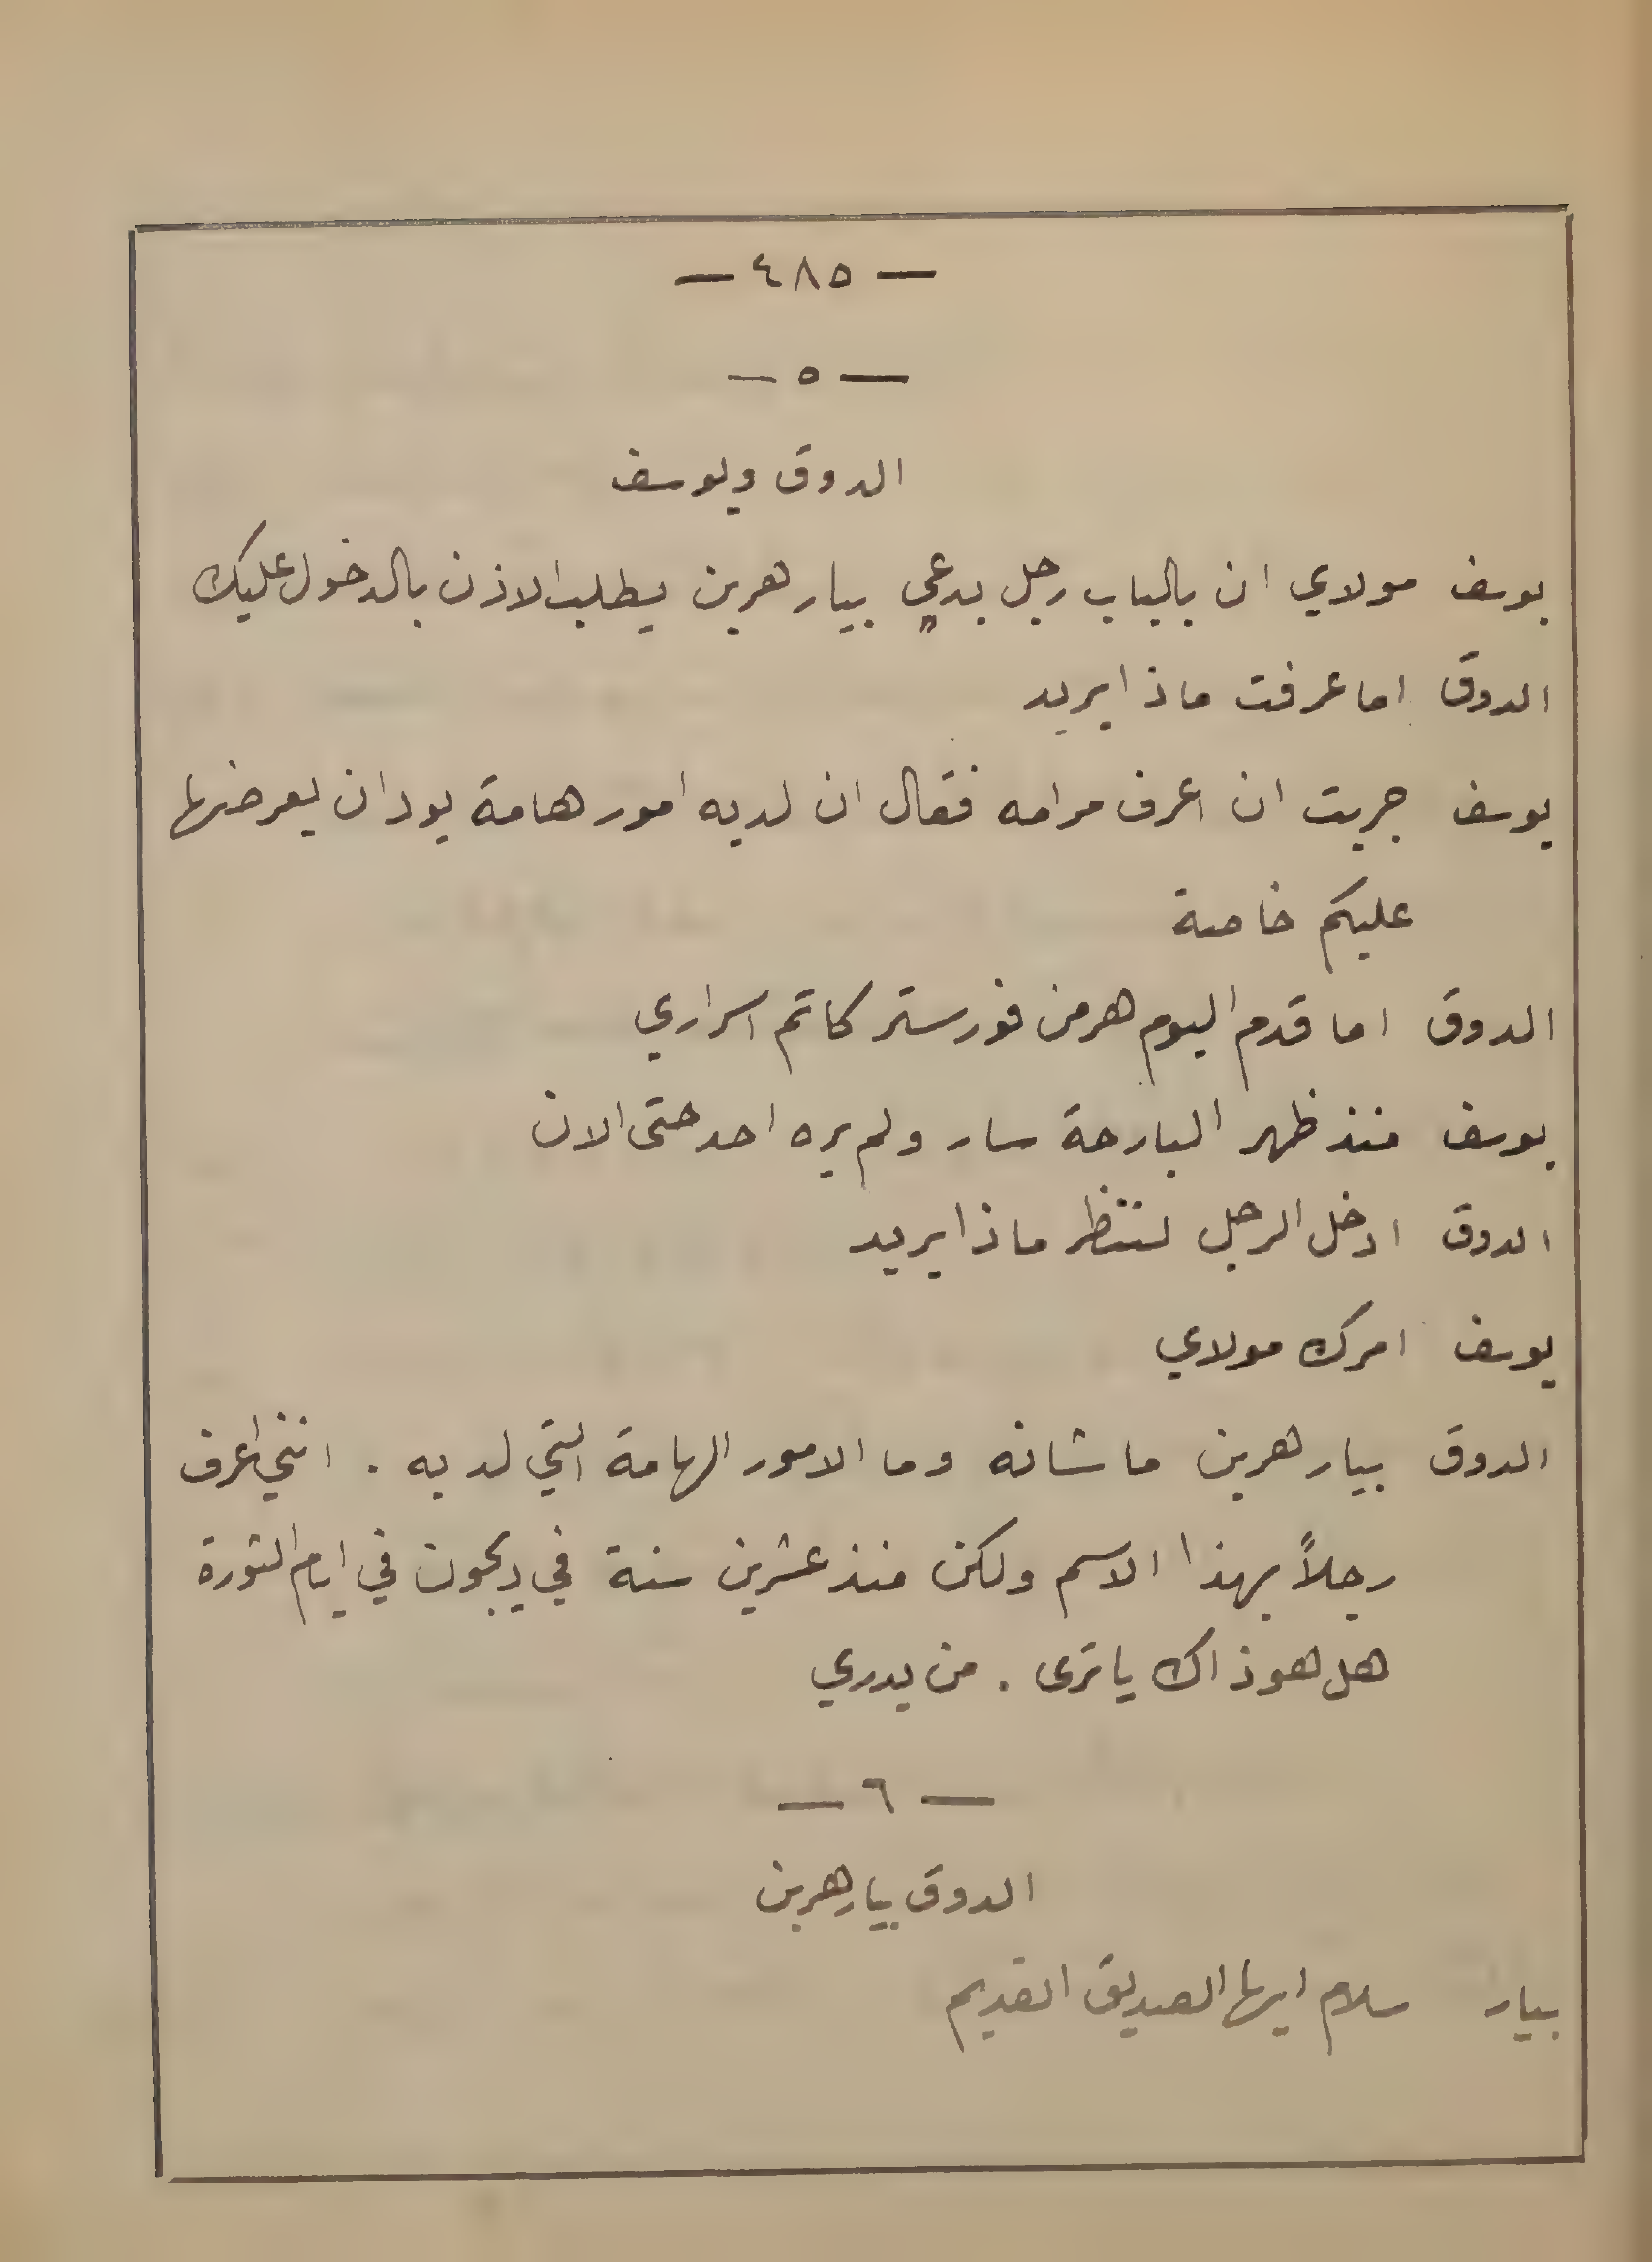 — ٤٨٥ —
— ٥ —
الدوق ويوسف
يوسف مولاي ان بالباب رجل يدعي بيار هرين يطلب الاذن بالدخول عليك
الدوق اما عرفت ماذا يريد
يوسف جربت ان اعرف مرامه فقال ان لديه امور هامة يود ان يعرضها
عليكم خاصة
الدوق اما قدم اليوم هرمن فورستر كاتم اسراري
يوسف منذ ظهر البارحة سار ولم يره احد حتى الان
الدوق ادخل الرجل لننظر ماذا يريد
يوسف امرك مولاي
الدوق بيار هرين ما شانه وما الامور الهامة التي لديه . انني اعرف
رجلاً بهذا الاسم ولكن منذ عشرين سنة في ديجون في ايام الثورة
هل هو ذاك يا ترى . من يدري
— ٦ —
الدوق بيار هرين
بيار سلام ايها الصديق القديم